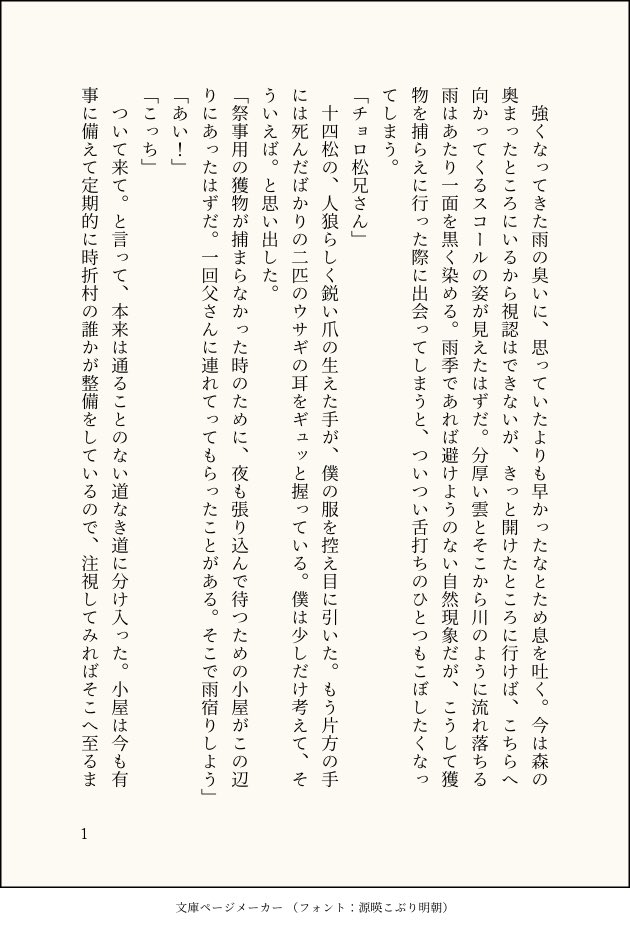 強くなってきた雨の臭いに、思っていたよりも早かったなとため息を吐く。今は森の
奥まったところにいるから視認はできないが、きっと開けたところに行けば、こちらへ
向かってくるスコールの姿が見えたはずだ。分厚い雲とそこから川のように流れ落ちる
雨はあたり一面を黒く染める。雨季であれば避けようのない自然現象だが、こうして獲
物を捕らえに行った際に出会ってしまうと、ついつい舌打ちのひとつもこぼしたくなっ
てしまう。
「チョロ松兄さん」
　十四松の、人狼らしく鋭い爪の生えた手が、僕の服を控え目に引いた。もう片方の手
には死んだばかりの二匹のウサギの耳をギュッと握っている。僕は少しだけ考えて、そ
ういえば。と思い出した。
「祭事用の獲物が捕まらなかった時のために、夜も張り込んで待つための小屋がこの辺
りにあったはずだ。一回父さんに連れてってもらったことがある。そこで雨宿りしよう」
「あい！」
「こっち」
　ついて来て。と言って、本来は通ることのない道なき道に分け入った。小屋は今も有
事に備えて定期的に時折村の誰かが整備をしているので、注視してみればそこへ至るま
1
文庫ページメーカー （フォント：源暎こぶり明朝）